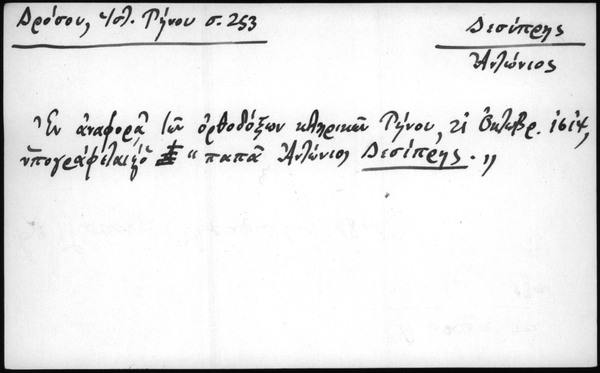 Δρόσου, Ἱστ. Τήνου σ. 253
Δεσίπρης
Ἀντώνιος
Ἐν ἀναφορᾷ τῶν ὀρθοδόξων κληρικῶν Τήνου, 21 Ὀκτωβρ. 1614,
ὑπογράφεται καὶ ὁ « παπᾶ Ἀντώνιος Δεσίπρης. »